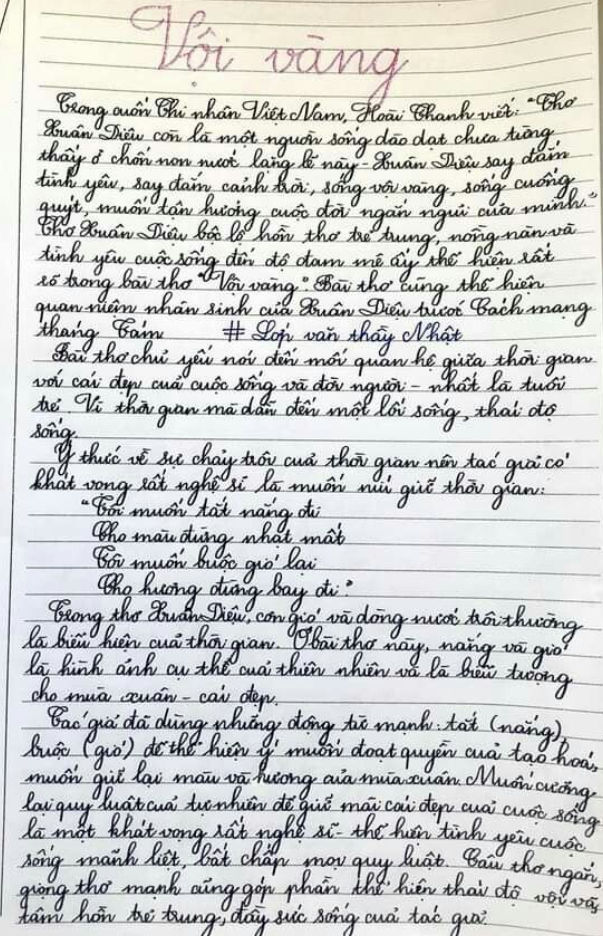 Vội vàng
Trong cuốn Thi nhân Việt Nam, Hoài Thanh viết: "Thơ
Xuân Diệu còn là một nguồn sống dào dạt chưa từng
thấy ở chốn non nước lặng lẽ này - Xuân Diệu say đắm
tình yêu, say đắm cảnh trời, sống vội vàng, sống cuống
quýt, muốn tận hưởng cuộc đời ngắn ngủi của mình."
Thơ Xuân Diệu bộc lộ hồn thơ trẻ trung, nồng nàn và
tình yêu cuộc sống đến độ đam mê ấy thể hiện rất
rõ trong bài thơ "Vội vàng". Bài thơ cũng thể hiện
quan niệm nhân sinh của Xuân Diệu trước Cách mạng
tháng Tám # Lớp văn thầy Nhật
Bài thơ chủ yếu nói đến mối quan hệ giữa thời gian
với cái đẹp của cuộc sống và đời người - nhất là tuổi
trẻ. Vì thời gian mà dẫn đến một lối sống, thái độ
sống.
Ý thức về sự chảy trôi của thời gian nên tác giả có
khát vọng rất nghệ sĩ là muốn níu giữ thời gian:
"Tôi muốn tắt nắng đi
Cho màu đừng nhạt mất
Tôi muốn buộc gió lại
Cho hương đừng bay đi."
Trong thơ Xuân Diệu, cơn gió và dòng nước trôi thường
là biểu hiện của thời gian. Ở bài thơ này, nắng và gió
là hình ảnh cụ thể của thiên nhiên và là biểu tượng
cho mùa xuân - cái đẹp.
Tác giả đã dùng những động từ mạnh: tắt (nắng),
buộc (gió) để thể hiện ý muốn đoạt quyền của tạo hoá,
muốn giữ lại màu và hương của mùa xuân. Muốn cưỡng
lại quy luật của tự nhiên để giữ mãi cái đẹp của cuộc sống
là một khát vọng rất nghệ sĩ - thể hiện tình yêu cuộc
sống mãnh liệt, bất chấp mọi quy luật. Câu thơ ngắn,
giọng thơ mạnh cũng góp phần thể hiện thái độ vội vã,
tâm hồn trẻ trung, đầy sức sống của tác giả.